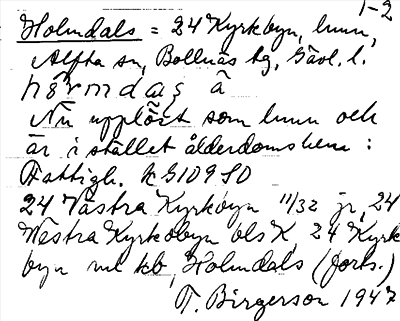 1-2
Holmdals = 24 Kyrkbyn, hmn,
Alfta sn, Bollnäs tg, Gävl. l.
hå̀rmdaʂ â
Nu upplöst som hmn och
är i stället ålderdomshem :
Fattigh. k G109 SO
24 Västra Kyrkbyn 11/32 jr, 24
Västra Kyrkobyn ols K, 24 Kyrk
byn ml kb, Holmdals (forts.)
T. Birgerson 1947